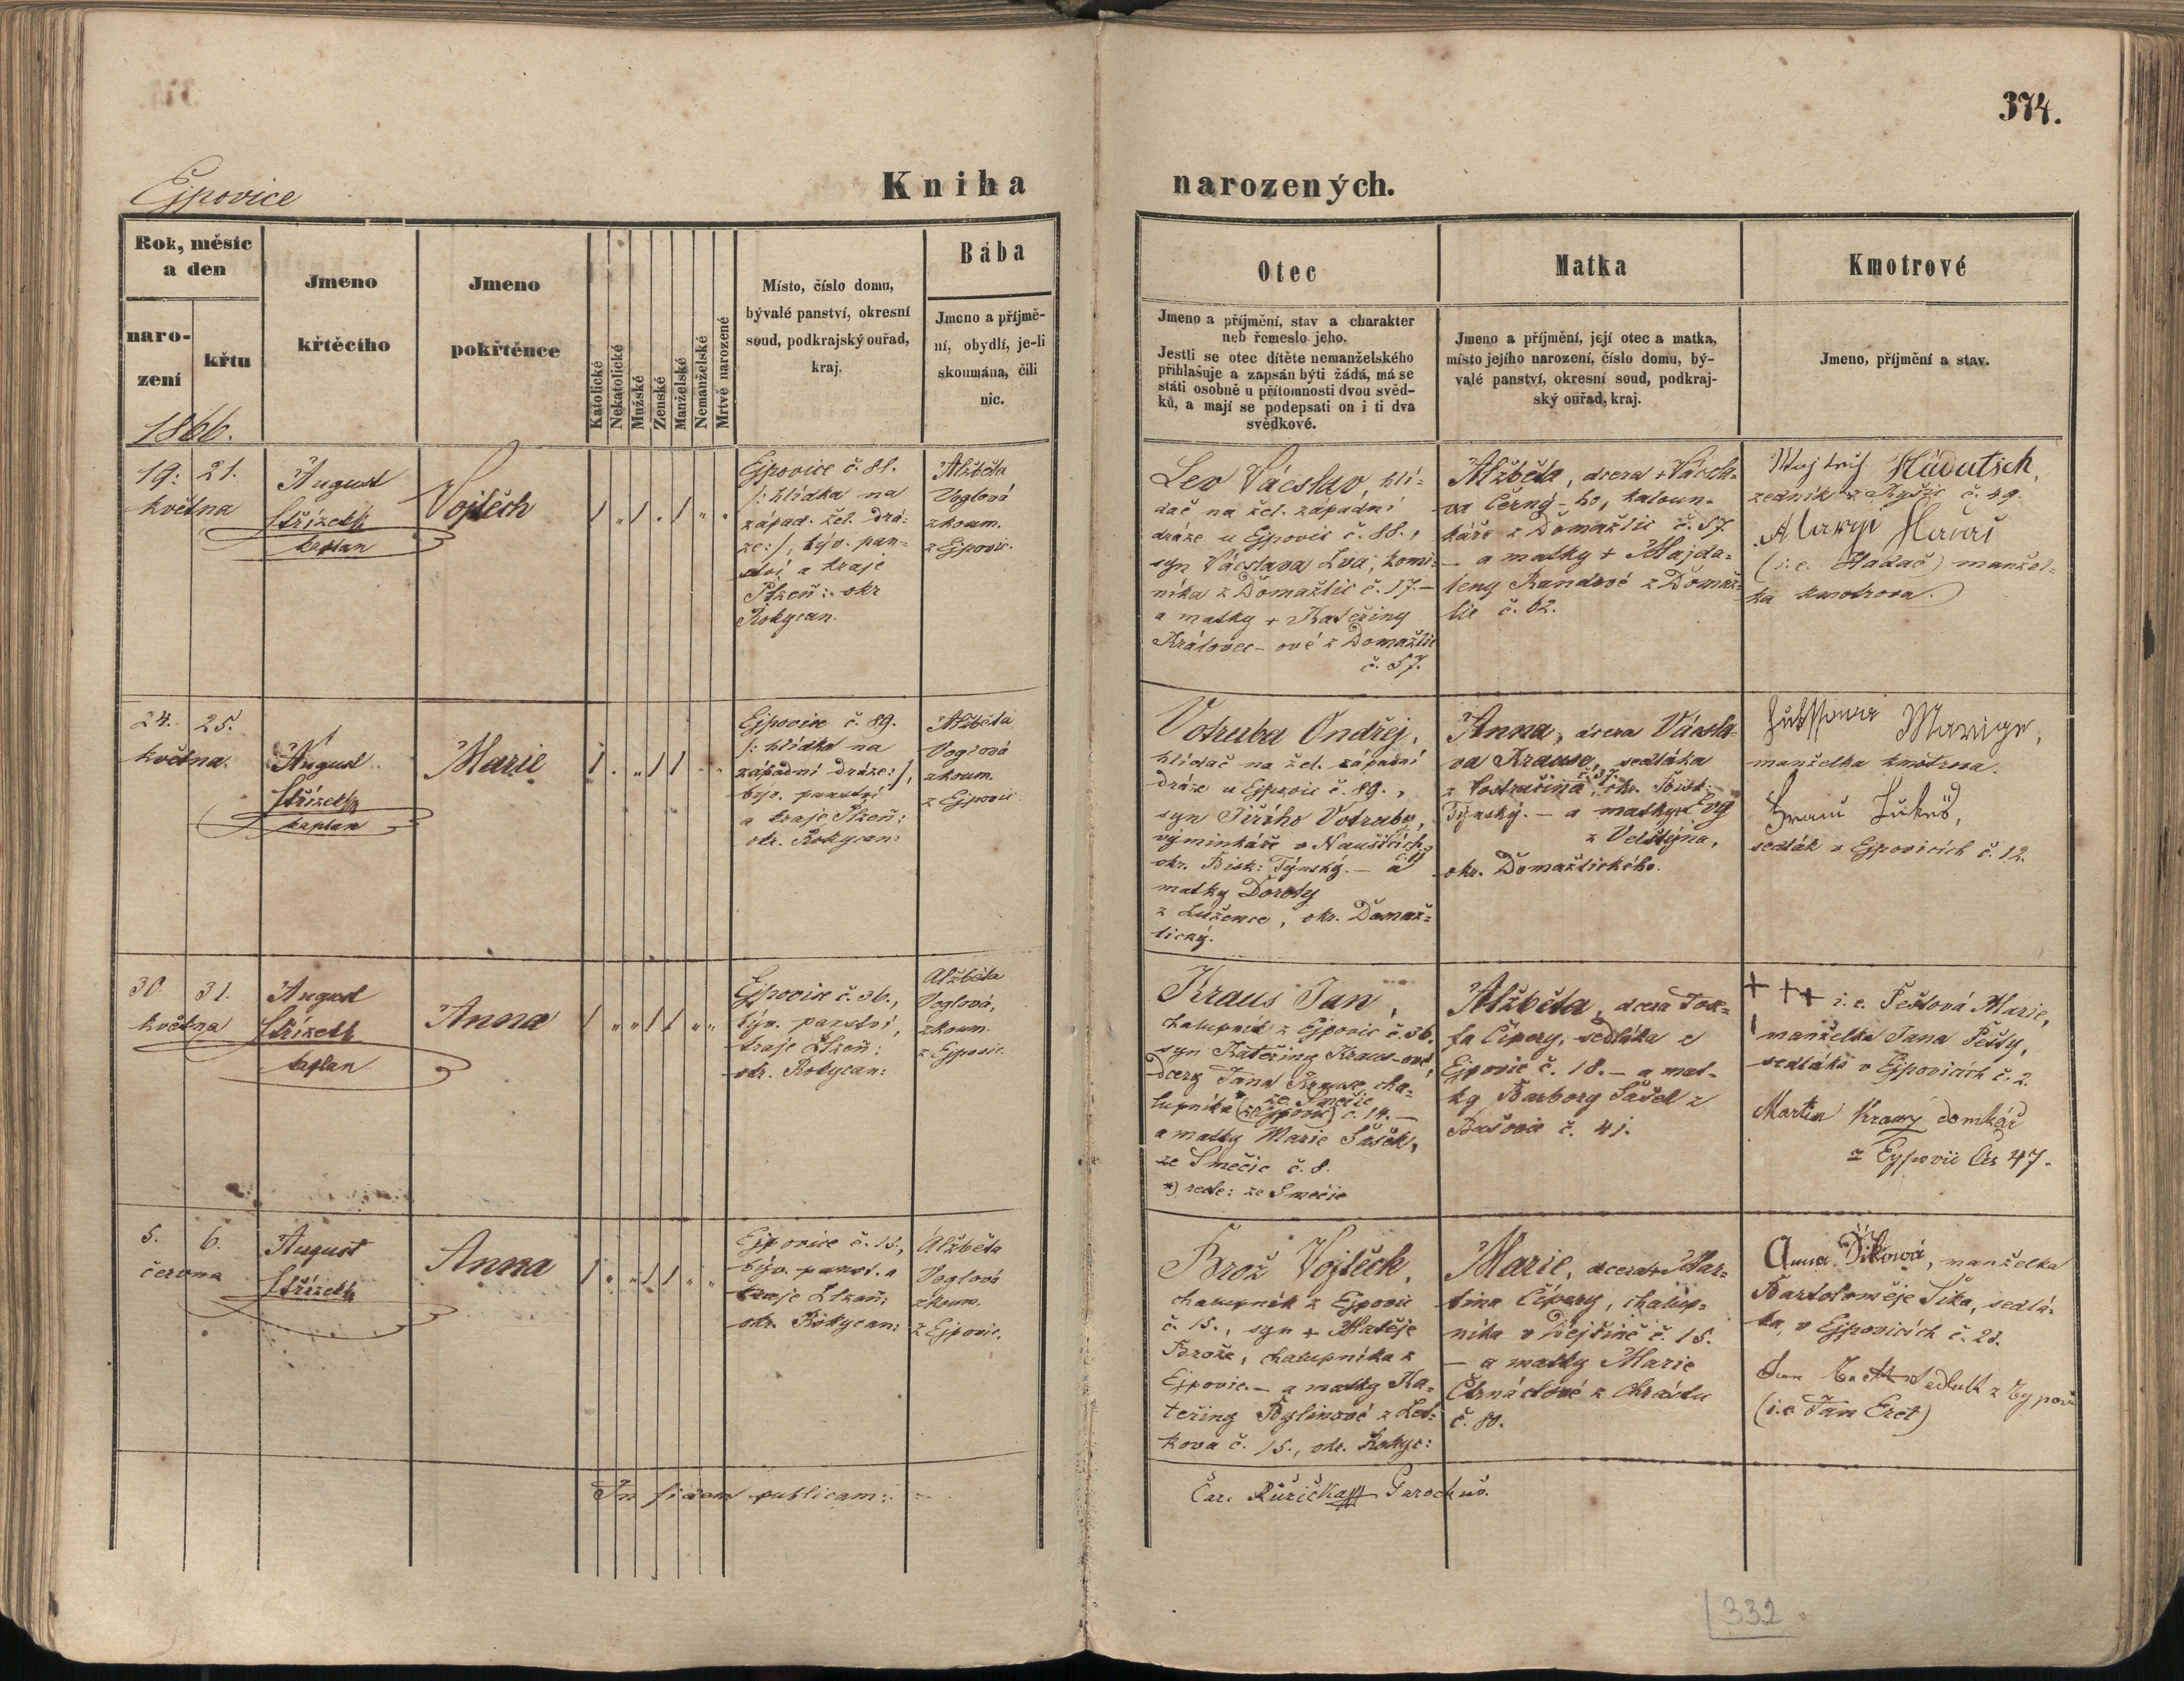 374.
Ejpovice
Kniha narozených.
Rok, měsíc
a den
naro-
zení
křtu
1866.
Jmeno
křtěcího
Jmeno
pokřtěnce
Katolické
Nekatolické
Mužské
Ženské
Manželské
Nemanželské
Mrtvě narozené
Místo, číslo domu,
bývalé panství, okresní
soud, podkrajský ouřad,
kraj.
Bába
Jmeno a příjmě-
ní, obydlí, je-li
skoumána, čili
nic.
Otec
Jmeno a příjmění, stav a charakter
neb řemeslo jeho.
Jestli se otec dítěte nemanželského
přihlašuje a zapsán býti žádá, má se
státi osobně u přítomnosti dvou svěd-
ků, a mají se podepsati on i ti dva
svědkové.
Matka
Jmeno a příjmění, její otec a matka,
místo jejího narození, číslo domu, bý-
valé panství, okresní soud, podkraj-
ský ouřad, kraj.
Kmotrové
Jmeno, příjmění a stav.
19. 21.
května
August
Střízek
kaplan
Vojtěch
Ejpovice č. 88.
/: hlídka na
západ. žel. drá-
ze:/, býv. pan-
ství a kraje
Plzeň: okr
Rokycan.
Alžběta
Voglová
zkoum.
z Ejpovic.
Lev Václav, hlí-
dač na žel. západní
dráze u Ejpovic č. 88.,
syn Václava Lva, komi-
níka z Domažlic č. 17.—
a matky + Kateřiny
Královec-ové z Domažlic
č. 57.
Alžběta, dcera + Václa-
va Černý-ho, kaloun-
káře z Domažlic č. 57
— a matky + Majda-
leny Randové z Domaž-
lic č. 62.
Hüdutsch,
zedník z Kyšic č. 49.
(i.e. Hadač) manžel-
ka kmotrova.
24. 25.
května.
August
Střízek
kaplan
Marie
Ejpovice č. 89.
/: hlídka na
západní dráze:/,
býv. panství
a kraje Plzeň:
okr. Rokycan:
Alžběta
Voglová
zkoum.
z Ejpovic
Votruba Ondřej,
hlídač na žel. západní
dráze u Ejpovic č. 89.,
syn Jiřího Votruby,
výminkáře v
okr. Bisk: Týnský. — a
matky Doroty
z Luženice, okr. Domaž-
lický.
Anna, dcera Václa-
va Krause, sedláka
okr. Bisk:
Týnský. — a matky Evy
okr. Domažlického.
Marige,
manželka kmotrova.
sedlák v Ejpovicích č. 12.
30. 31.
května
August
Střízek
kaplan
Anna
Ejpovice č. 36.,
býv. panství,
kraje Plzeň:
okr. Rokycan:
Alžběta
Voglová,
zkoum.
z Ejpovic.
Kraus Jan,
chalupník z Ejpovic č. 36.
syn Kateřiny Kraus-ové,
dcery Jana Krause, cha-
lupníka * ze Smečic
(z Ejpovic) č. 14. —
a matky Marie Šašek,
ze Smečic č. 8.
*) recte: ze Smečic
Alžběta, dcera Jose-
fa Cipery, sedláka z
Ejpovic č. 18. — a mat-
ky Barbory Sašek z
Bušovic č. 41.
+++ i.e. Pešlová Marie,
manželka Jana Pešty,
sedláka v Ejpovicích č. 2.
Martin Kraus domkář
z Eypovic Čis 47.
5. 6.
června
August
Střízek
Anna
Ejpovice č. 15.,
býv. panst. a
kraje Plzeň:
okr. Rokycan:
Alžběta
Voglová
zkoum.
z Ejpovic.
Brož Vojtěch,
chalupník z Ejpovic
č. 15., syn + Matěje
Brože, chalupníka z
Ejpovic. — a matky Ka-
teřiny Bylinové z Let-
kova č. 15., okr. Rokyc:
Marie, dcera + Mar-
tina Cipery, chalup-
níka v Dejšině č. 15.
— a matky Marie
Čtrnáctové z Chrástu
č. 80.
Anna Šiková, manželka
Bartoloměje Šika, sedlá-
ka, v Ejpovicích č. 23.
Jan Erett Sedlák z Eypovic
(i.e Jan Eret)
In fidem publicam:
Čar. Růžička Parochus.
332